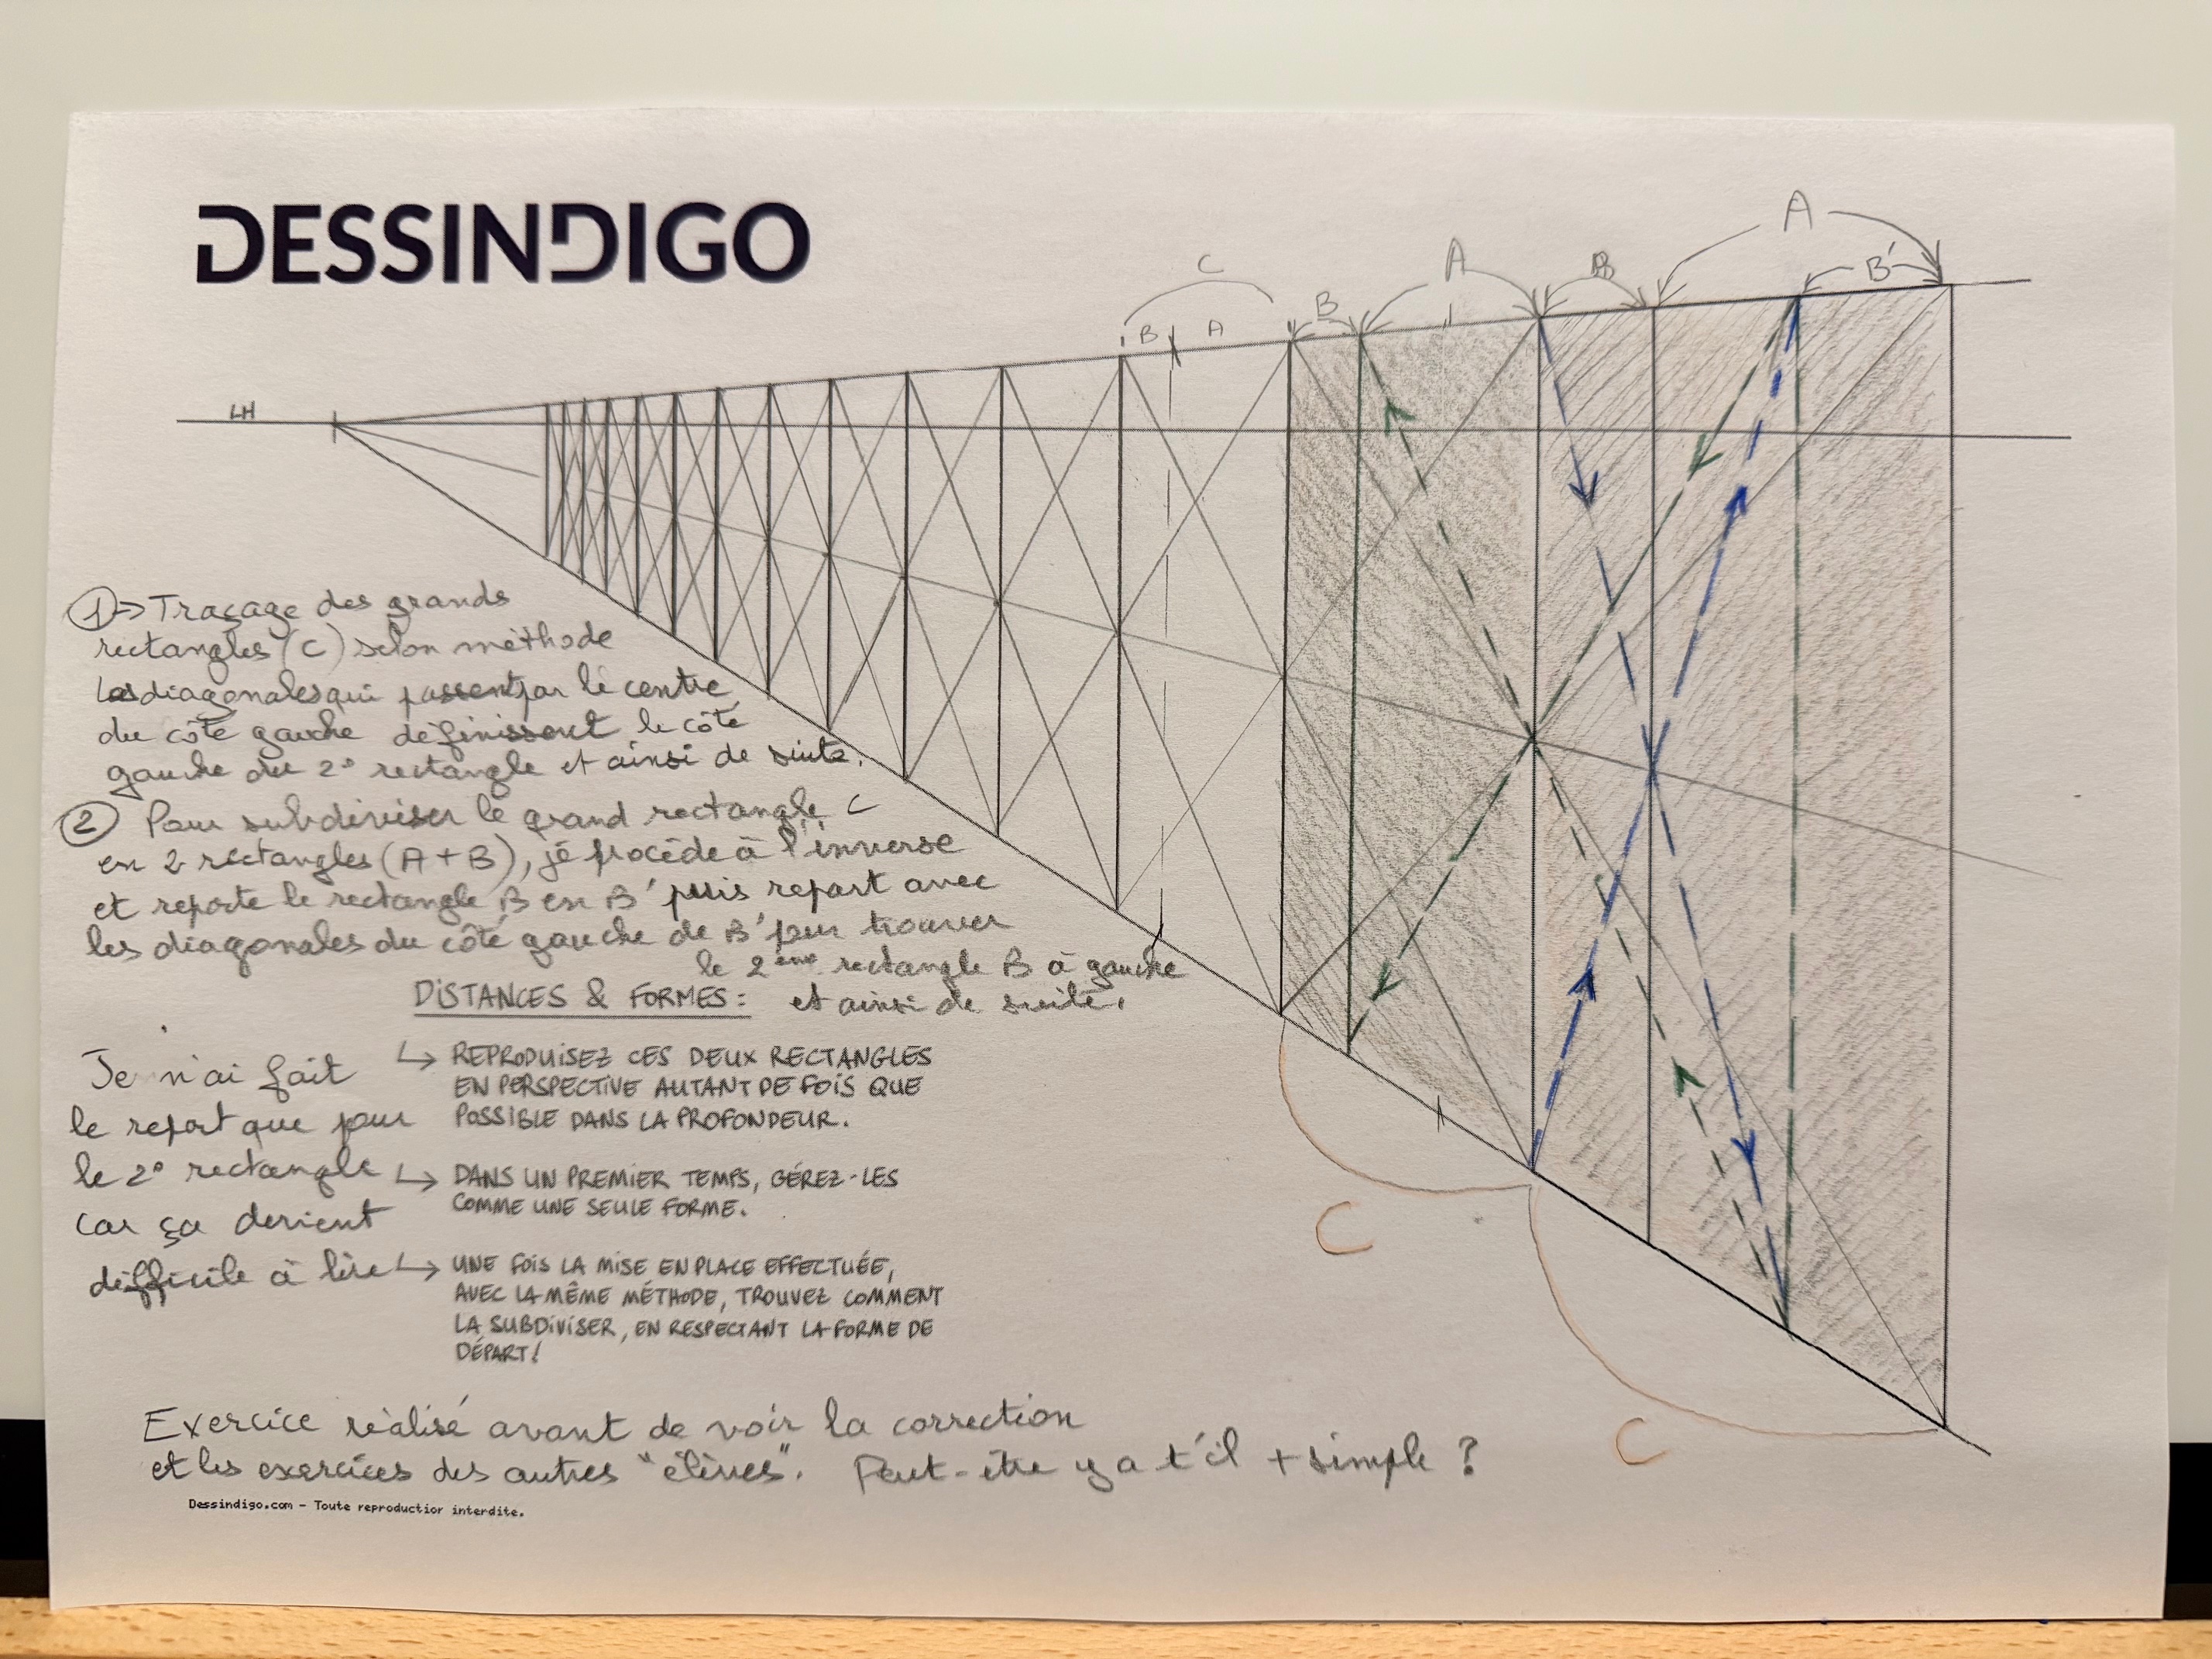 DESSINDIGO
A
C
A
B
B'
B
B
A
LH
1 → Traçage des grands
rectangles (C) selon méthode
Les diagonales qui passent par le centre
du côté gauche définissent le côté
gauche du 2° rectangle et ainsi de suite.
2 Pour subdiviser le grand rectangle C
en 2 rectangles (A + B), je procède à l'inverse
et reporte le rectangle B en B' puis repart avec
les diagonales du côté gauche de B' pour trouver
le 2ème rectangle B à gauche
et ainsi de suite.
DISTANCES & FORMES :
Je n'ai fait
le report que pour
le 2° rectangle
car ça devient
difficile à lire
↳ REPRODUISEZ CES DEUX RECTANGLES
EN PERSPECTIVE AUTANT DE FOIS QUE
POSSIBLE DANS LA PROFONDEUR.
↳ DANS UN PREMIER TEMPS, GÉREZ-LES
COMME UNE SEULE FORME.
↳ UNE FOIS LA MISE EN PLACE EFFECTUÉE,
AVEC LA MÊME MÉTHODE, TROUVEZ COMMENT
LA SUBDIVISER, EN RESPECTANT LA FORME DE
DÉPART!
C
C
Exercice réalisé avant de voir la correction
et les exercices des autres "élèves". Peut-être y a t'il + simple ?
Dessindigo.com - Toute reproduction interdite.